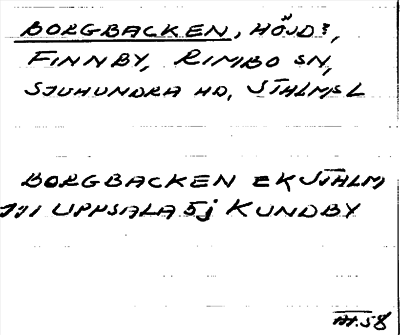 BORGBACKEN, HÖJD?,
FINNBY, RIMBO SN,
SJUHUNDRA HD, STHLMS L
BORGBACKEN EK STHLM
111 UPPSALA 5j KUNDBY
58